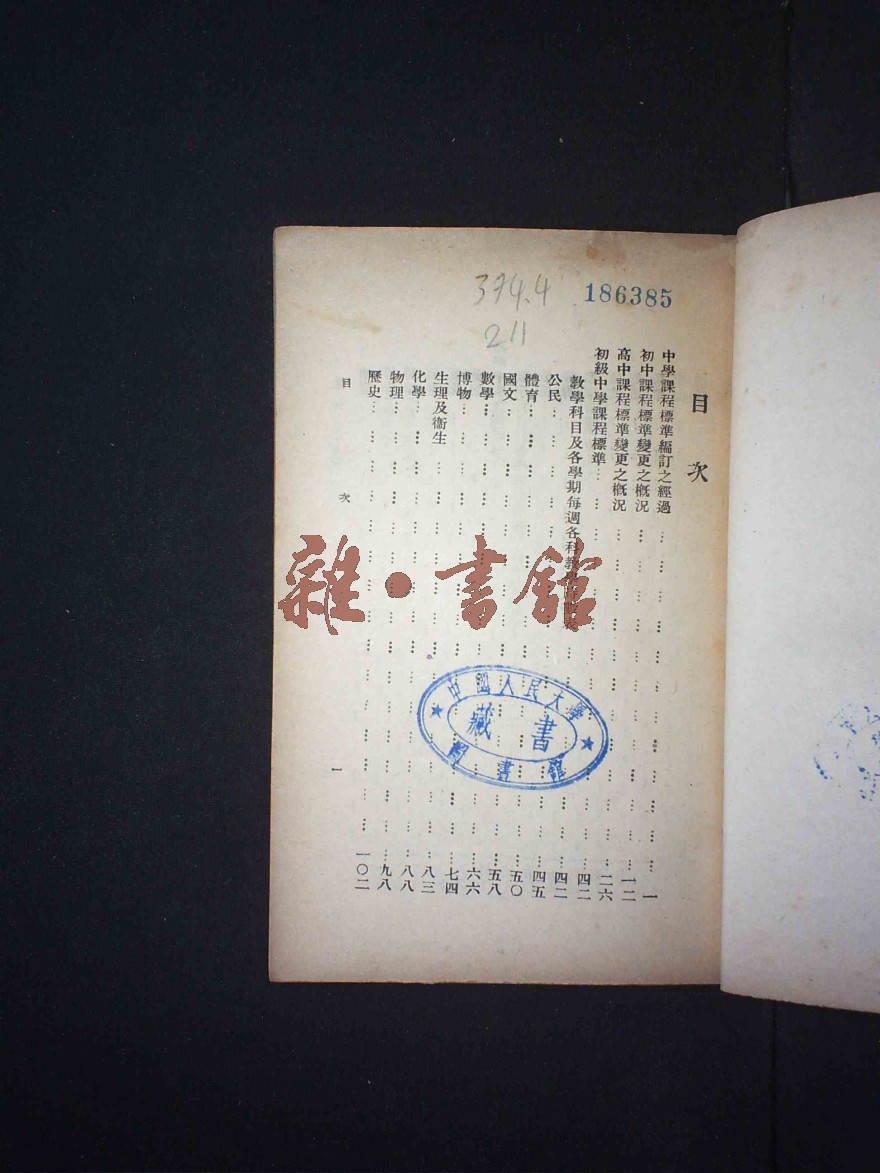 374.4
211
186385
目次
中學課程標準編訂之經過……一
初中課程標準變更之概況……一二
高中課程標準變更之概況……二六
初級中學課程標準……四二
教學科目及各學期每週各科教……四二
公民……四五
體育……五〇
國文……五八
數學……六六
博物……七四
生理及衞生……八三
化學……八八
物理……九八
歷史……一〇二
目次
一
雜·書館
中國人民大學
藏書
圖書館